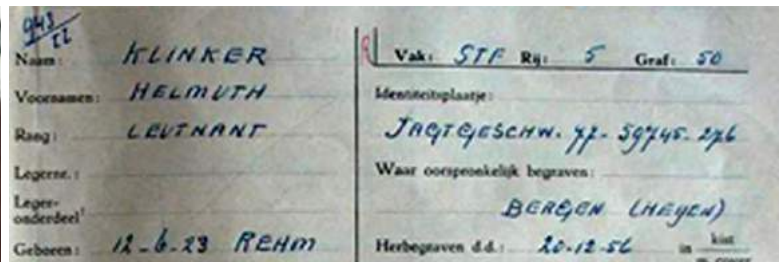 943/22
Naam: KLINKER
Voornamen: HELMUTH
Rang: LEUTNANT
Legerne.:
Leger-
onderdeel
Geboren: 12-6-23 REHM
Vak: STF Rij: 5 Graf: 50
Identiteitsplaatje:
JAGTGESCHW. 77 - 59745. 276
Waar oorspronkelijk begraven:
BERGEN (HEYEN)
Herbegraven d.d.: 20-12-56 in kist